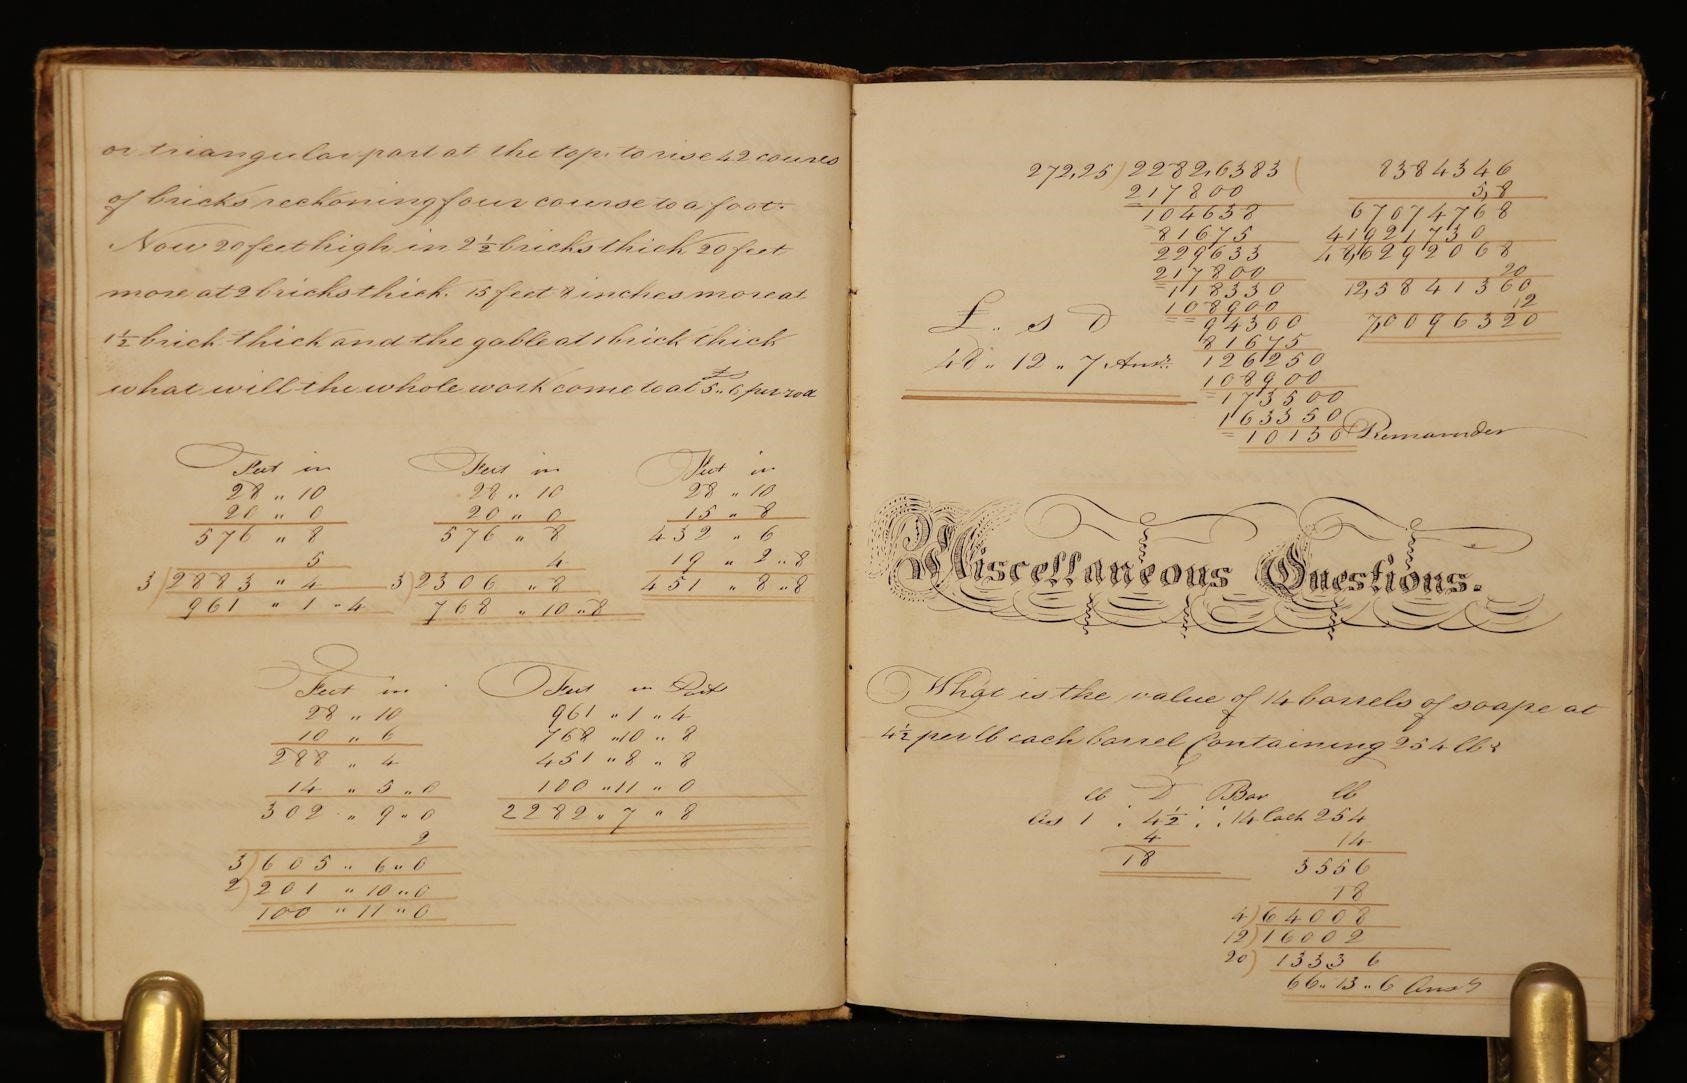 or triangular part at the top to rise 42 courses
of bricks reckoning four course to a foot.
Now 20 feet high in 2½ bricks thick 20 feet
more at 2 bricks thick. 15 feet 8 inches more at
1½ brick thick and the gable at 1 brick thick
what will the whole work come to at 5,, 6 per rod
Feet in
28 ,, 10
20 ,, 0
576 ,, 8
5
3)2883 ,, 4
961 ,, 1 ,, 4
Feet in
28 ,, 10
20 ,, 0
576 ,, 8
4
3)2306 ,, 8
768 ,, 10 ,, 8
Feet in
28 ,, 10
15 ,, 8
432 ,, 6
19 ,, 2 ,, 8
451 ,, 8 ,, 8
Feet in
28 ,, 10
10 ,, 6
288 ,, 4
14 ,, 5 ,, 0
302 ,, 9 ,, 0
2
3)605 ,, 6 ,, 0
2)201 ,, 10 ,, 0
100 ,, 11 ,, 0
Feet in Pts
961 ,, 1 ,, 4
768 ,, 10 ,, 8
451 ,, 8 ,, 8
100 ,, 11 ,, 0
2282 ,, 7 ,, 8
272,25)2282,6383(
217800
104638
81675
229633
217800
118330
108900
94300
81675
126250
108900
173500
163350
10130 Remainder
8384346
5,8
67074768
41921730
48,6292068
20
12,5841360
12
7,0096320
£ ,, s D
48 ,, 12 ,, 7 Ans.
Miscellaneous Questions.
What is the value of 14 barrels of soape at
4½ per lb each barrel Containing 254 lbs
lb D Bar lb
As 1 : 4½ :: 14 Each 254
4
18
14
3556
18
4)64008
12)16002
20) 1333 6
66 ,, 13 ,, 6 Ans